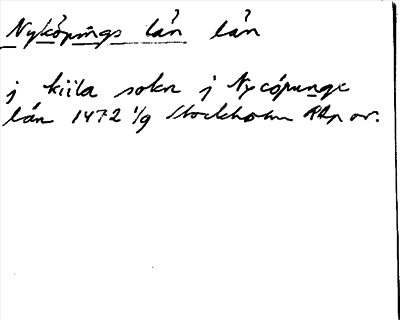 Nyköpings län län
j kiila sokn j Nycöpunge
län 1472 1/9 Stockholm RAp or.